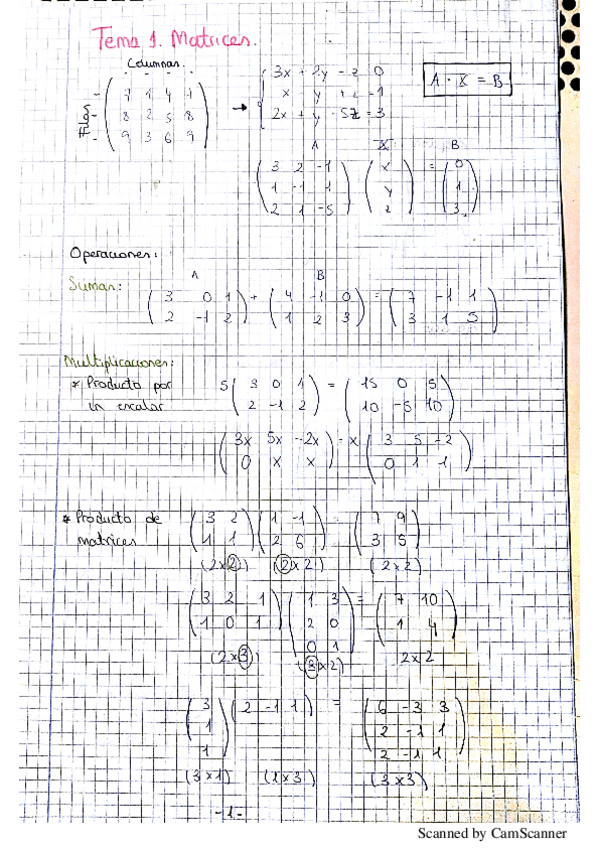 Tema 1. Matrices.
Columnas.
Filas
7 1 4 1
8 2 5 8
9 3 6 9
→
3x + 2y - z = 0
x y + z = 1
2x + y - 5z = 3
A · X = B
A X B
3 2 -1 x = 0
1 -1 1 y 1
2 1 -5 z 3
Operaciones:
A B
Sumar:
3 0 1 + 4 -1 0 = 7 -1 1
2 -1 2 1 2 3 3 1 5
Multiplicaciones:
* Producto por un escalar
5 ( 3 0 1 ) = ( 15 0 5 )
2 -1 2 10 -5 10
( 3x 5x -2x ) = x ( 3 5 -2 )
0 x x 0 1 1
* Producto de matrices
3 2 1 -1 = 7 9
1 1 2 6 3 5
(2x2) (2x2) (2x2)
3 2 1 1 3 = 7 10
1 0 1 2 0 1 4
0 1
(2x3) (3x2) 2x2
3 2 -1 1 = 6 -3 3
1 2 -1 1
1 2 -1 1
(3x1) (1x3) (3x3)
-1-
Scanned by CamScanner